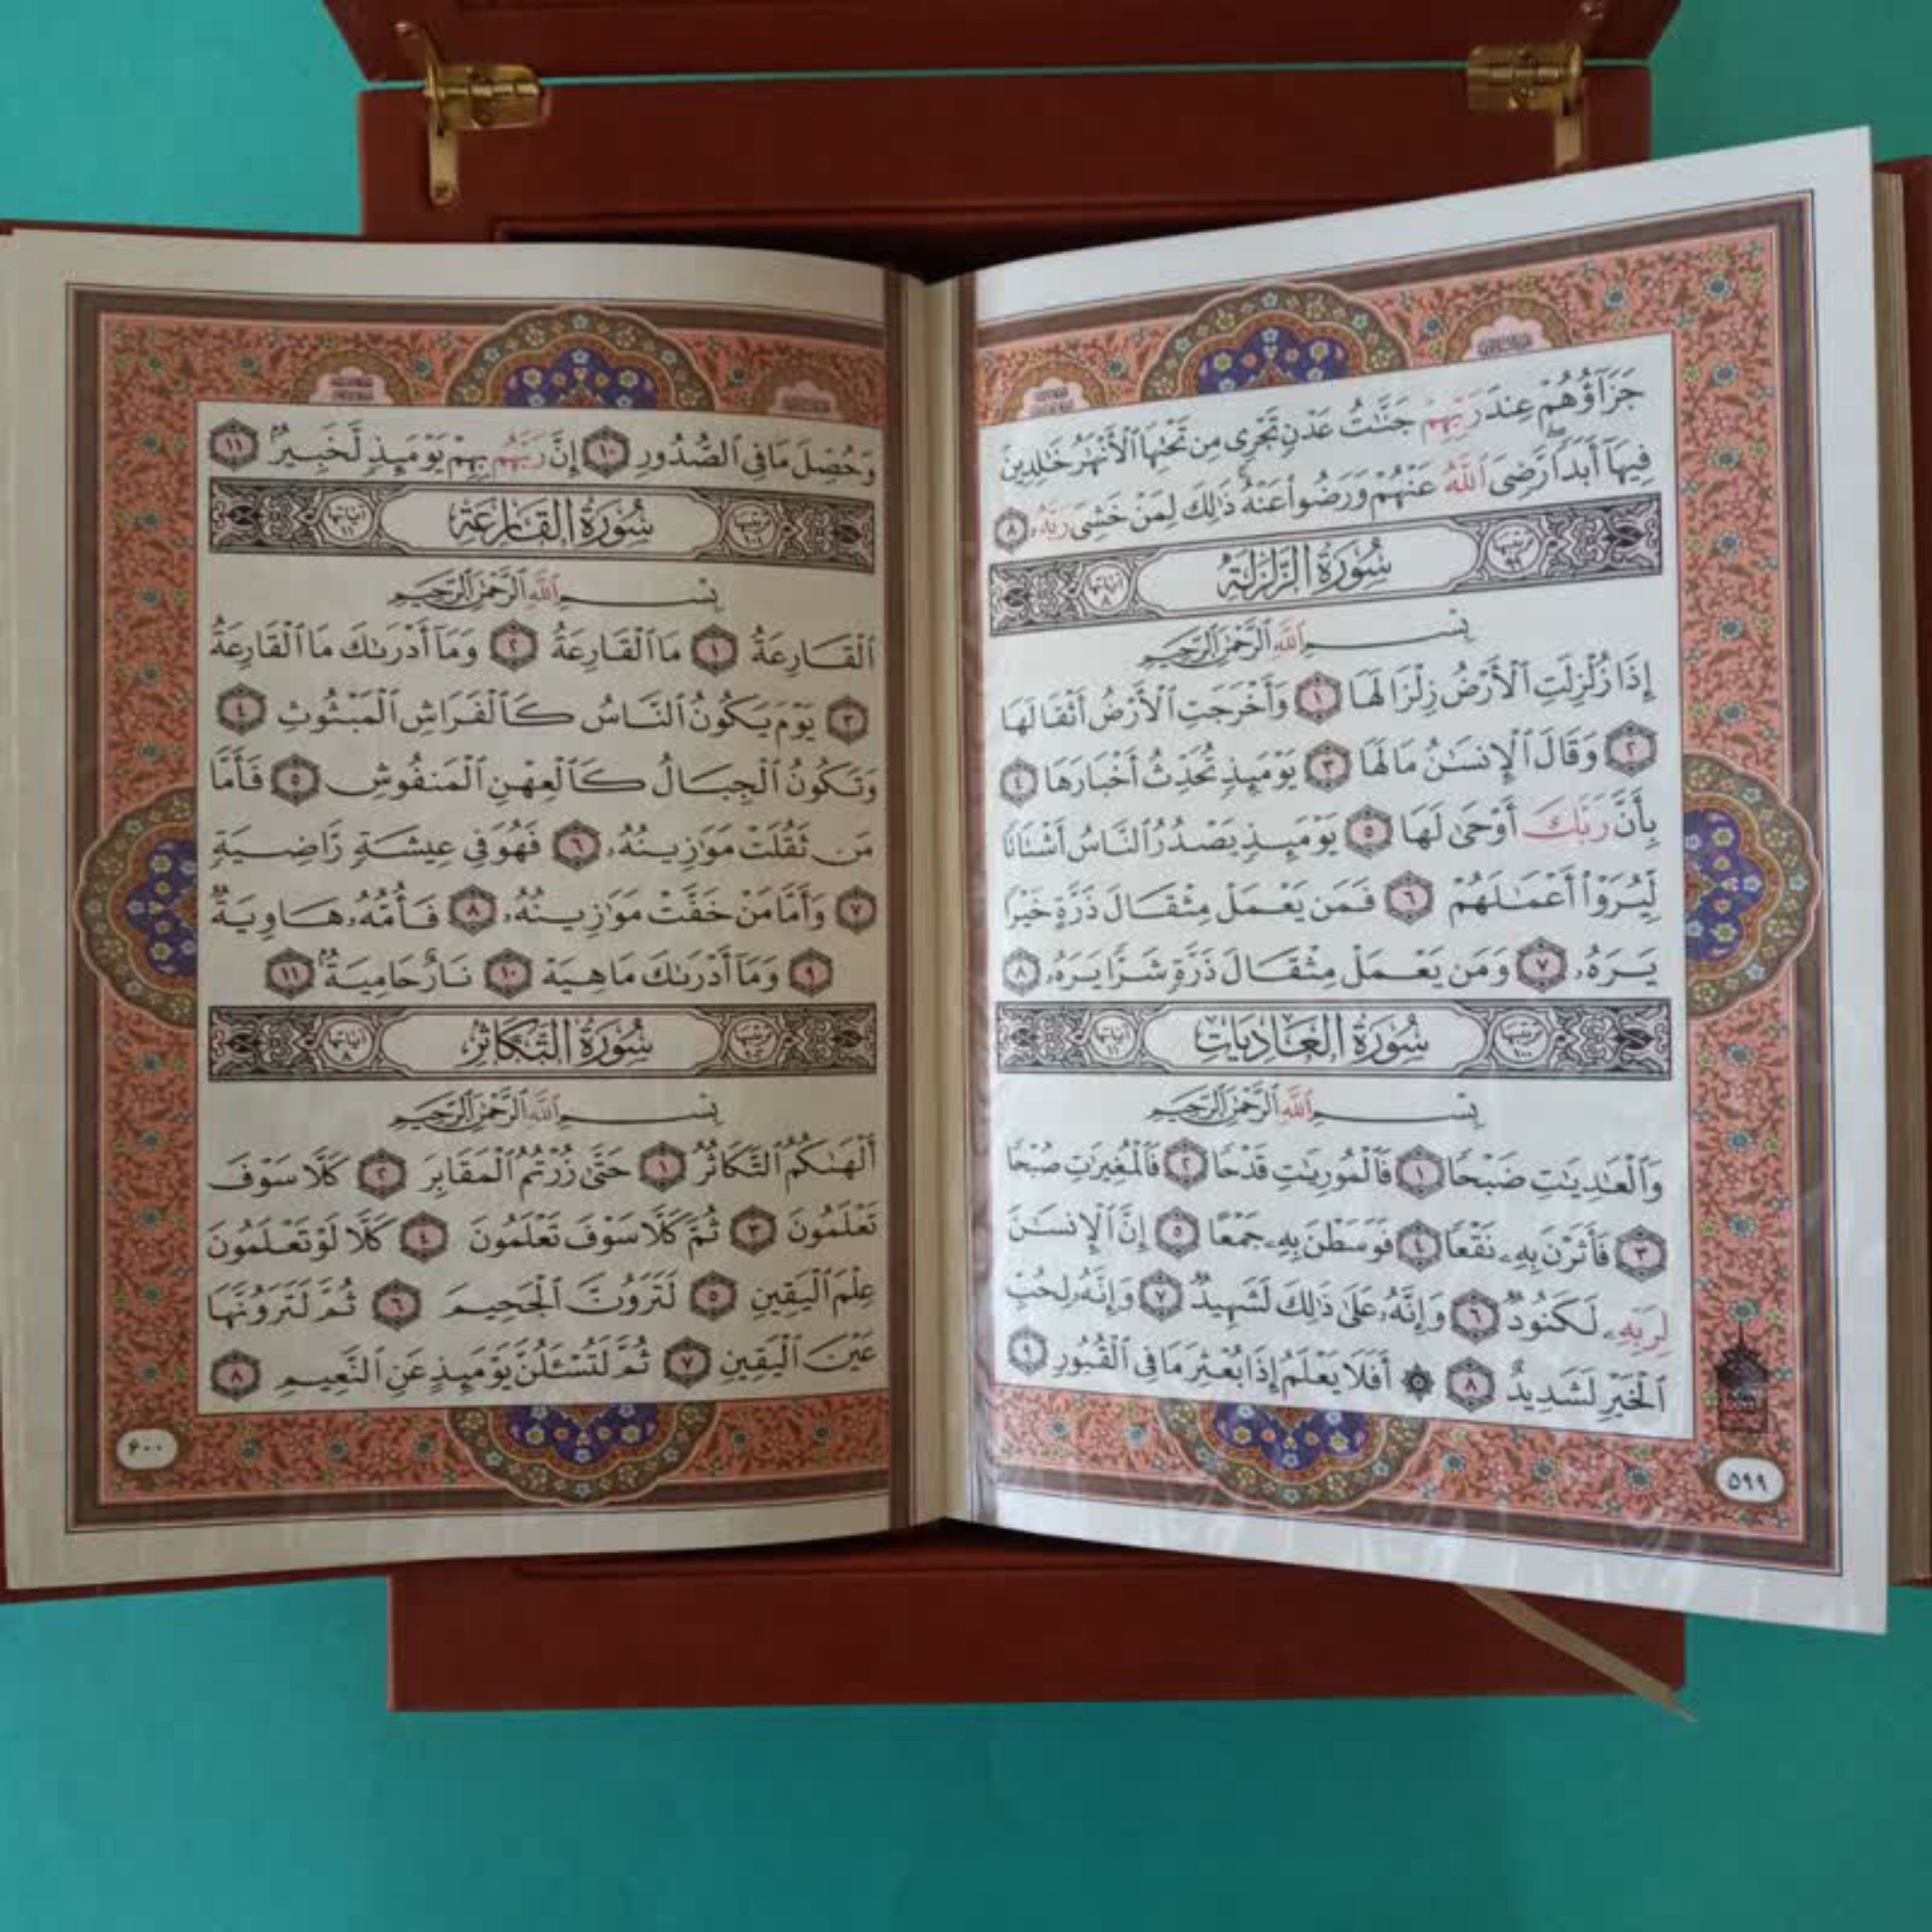 جَزَآؤُهُمْ عِندَ رَبِّهِمْ جَنَّٰتُ عَدْنٍ تَجْرِى مِن تَحْتِهَا ٱلْأَنْهَٰرُ خَٰلِدِينَ
فِيهَآ أَبَدًا رَّضِىَ ٱللَّهُ عَنْهُمْ وَرَضُوا۟ عَنْهُ ذَٰلِكَ لِمَنْ خَشِىَ رَبَّهُۥ ٨
مرتبتها ٩٩ سُورَةُ الزَّلزَلَةِ آياتها ٨
بِسْمِ ٱللَّهِ ٱلرَّحْمَٰنِ ٱلرَّحِيمِ
إِذَا زُلْزِلَتِ ٱلْأَرْضُ زِلْزَالَهَا ١ وَأَخْرَجَتِ ٱلْأَرْضُ أَثْقَالَهَا
٢ وَقَالَ ٱلْإِنسَٰنُ مَا لَهَا ٣ يَوْمَئِذٍ تُحَدِّثُ أَخْبَارَهَا ٤
بِأَنَّ رَبَّكَ أَوْحَىٰ لَهَا ٥ يَوْمَئِذٍ يَصْدُرُ ٱلنَّاسُ أَشْتَاتًا
لِّيُرَوْا۟ أَعْمَٰلَهُمْ ٦ فَمَن يَعْمَلْ مِثْقَالَ ذَرَّةٍ خَيْرًا
يَرَهُۥ ٧ وَمَن يَعْمَلْ مِثْقَالَ ذَرَّةٍ شَرًّا يَرَهُۥ ٨
مرتبتها ١٠٠ سُورَةُ العَادِيَاتِ آياتها ١١
بِسْمِ ٱللَّهِ ٱلرَّحْمَٰنِ ٱلرَّحِيمِ
وَٱلْعَٰدِيَٰتِ ضَبْحًا ١ فَٱلْمُورِيَٰتِ قَدْحًا ٢ فَٱلْمُغِيرَٰتِ صُبْحًا
٣ فَأَثَرْنَ بِهِۦ نَقْعًا ٤ فَوَسَطْنَ بِهِۦ جَمْعًا ٥ إِنَّ ٱلْإِنسَٰنَ
لِرَبِّهِۦ لَكَنُودٌ ٦ وَإِنَّهُۥ عَلَىٰ ذَٰلِكَ لَشَهِيدٌ ٧ وَإِنَّهُۥ لِحُبِّ
ٱلْخَيْرِ لَشَدِيدٌ ٨ ۞ أَفَلَا يَعْلَمُ إِذَا بُعْثِرَ مَا فِى ٱلْقُبُورِ ٩
۵۹۹
وَحُصِّلَ مَا فِى ٱلصُّدُورِ ١٠ إِنَّ رَبَّهُم بِهِمْ يَوْمَئِذٍ لَّخَبِيرٌۢ ١١
مرتبتها ١٠١ سُورَةُ القَارِعَةِ آياتها ١١
بِسْمِ ٱللَّهِ ٱلرَّحْمَٰنِ ٱلرَّحِيمِ
ٱلْقَارِعَةُ ١ مَا ٱلْقَارِعَةُ ٢ وَمَآ أَدْرَىٰكَ مَا ٱلْقَارِعَةُ
٣ يَوْمَ يَكُونُ ٱلنَّاسُ كَٱلْفَرَاشِ ٱلْمَبْثُوثِ ٤
وَتَكُونُ ٱلْجِبَالُ كَٱلْعِهْنِ ٱلْمَنفُوشِ ٥ فَأَمَّا
مَن ثَقُلَتْ مَوَٰزِينُهُۥ ٦ فَهُوَ فِى عِيشَةٍ رَّاضِيَةٍ
٧ وَأَمَّا مَنْ خَفَّتْ مَوَٰزِينُهُۥ ٨ فَأُمُّهُۥ هَاوِيَةٌ
٩ وَمَآ أَدْرَىٰكَ مَا هِيَهْ ١٠ نَارٌ حَامِيَةٌۢ ١١
مرتبتها ١٠٢ سُورَةُ التَّكَاثُرِ آياتها ٨
بِسْمِ ٱللَّهِ ٱلرَّحْمَٰنِ ٱلرَّحِيمِ
أَلْهَىٰكُمُ ٱلتَّكَاثُرُ ١ حَتَّىٰ زُرْتُمُ ٱلْمَقَابِرَ ٢ كَلَّا سَوْفَ
تَعْلَمُونَ ٣ ثُمَّ كَلَّا سَوْفَ تَعْلَمُونَ ٤ كَلَّا لَوْ تَعْلَمُونَ
عِلْمَ ٱلْيَقِينِ ٥ لَتَرَوُنَّ ٱلْجَحِيمَ ٦ ثُمَّ لَتَرَوُنَّهَا
عَيْنَ ٱلْيَقِينِ ٧ ثُمَّ لَتُسْـَٔلُنَّ يَوْمَئِذٍ عَنِ ٱلنَّعِيمِ ٨
۶۰۰